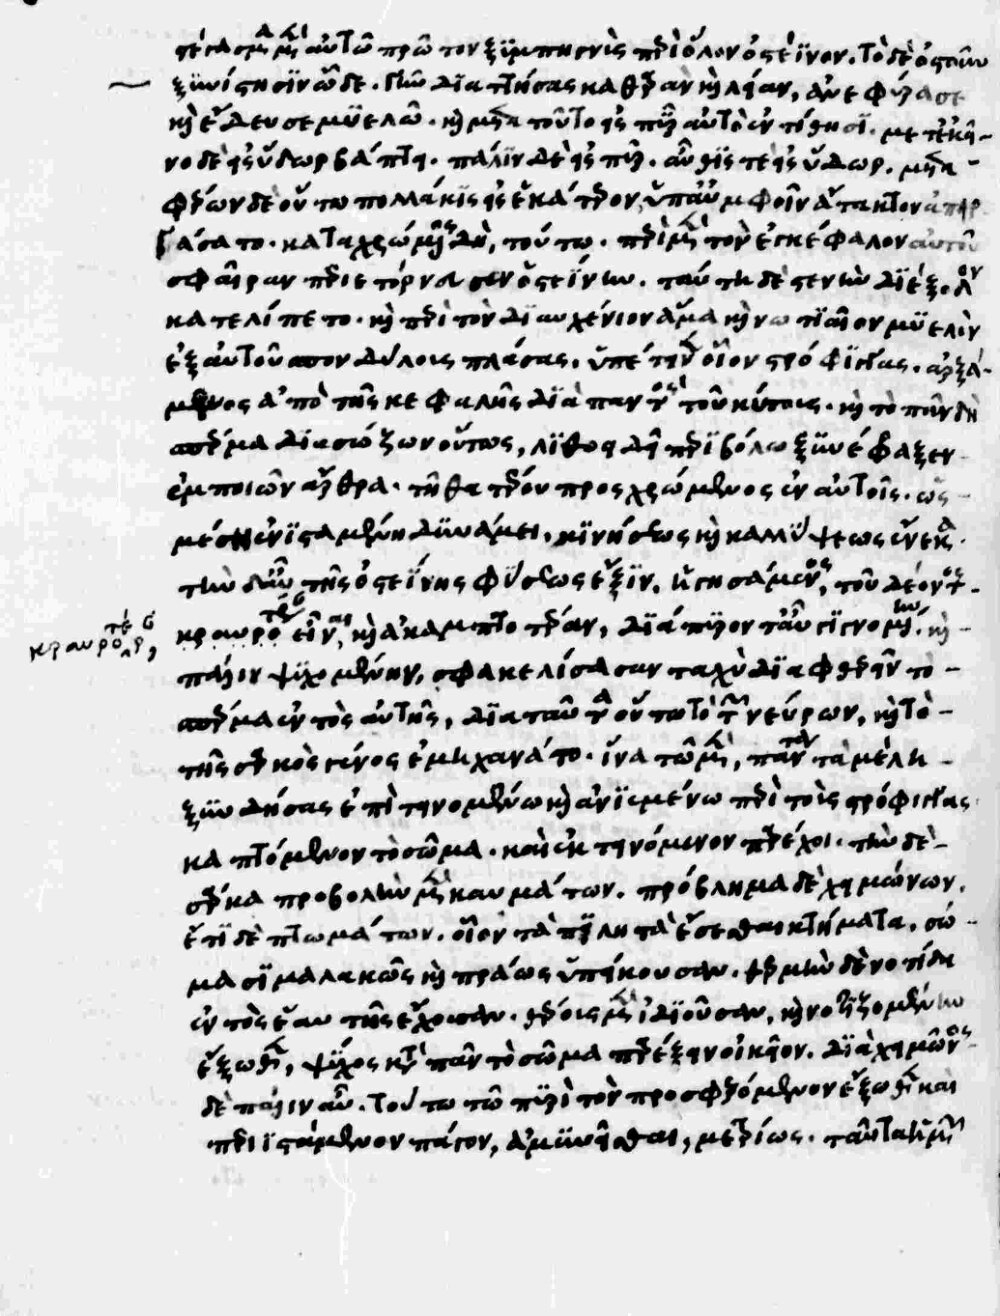 στέγασμα μὲν αὐτῶ πρῶτον ξυμπηγνὺς περὶ ὅλον ὀστέϊνον. τὸ δὲ ὀστοῦν
ξυνίστησϊν ὧδε. γῆν δϊαττήσας καθαρὰν καὶ λείαν, ἀνεφύρασε
καὶ ἔδευσε μϋελῶ. καὶ μετὰ τοῦτο εἰς πῦρ αὐτὸ ἐντίθησϊ. μετ' ἐκεῖ-
νο δὲ εἰς ὕδωρ βάπτει. πάλϊν δὲ εἰς πῦρ. αὖθϊς τὲ εἰς ὕδωρ. μετα-
φέρων δὲ οὕτω πολλάκϊς εἰς ἑκάτερον, ὑπ' ἀμφοῖν ἄτηκτον ἀπηρ
γάσατο. καταχρώμενος δὴ, τούτω. περὶ μὲν τὸν ἐγκέφαλον αὐτοῦ
σφαῖραν περιετόρνευσεν ὀστεΐνην. ταύτη δὲ στενὴν δϊέξοδον
κατελίπετο. καὶ περὶ τὸν δϊαυχένιον ἅμα καὶ νωτϊαῖον μϋελὸν
ἐξ αὐτοῦ σπονδύλους πλάσας. ὑπέτεινεν οἷον στρόφϊγγας. ἀρξά-
μενος ἀπὸ τῆς κεφαλῆς δϊὰ παντὸς τοῦ κύτους. καὶ τὸ πᾶν δὴ
σπέρμα δϊασώζων οὕτως, λϊθοειδῆ περϊβόλω ξϋνέφραξεν
ἐμποιῶν ἄρθρα. τῆ θατέρου προσχρώμενος ἐν αὐτοῖς. ὡς
μέση ἐνϊσταμένη δϋνάμει. κϊνήσεως καὶ κάμψεως ἕνεκα.
τὴν δ' αὖ τῆς ὀστεΐνης φϋσεως ἕξϊν, ἡγησάμενος, τοῦ δέοντος
κραυροτέραν εἶναι, καὶ ἀκαμπτοτέραν, δϊάπϋρον τ' αὖ γϊγνομένην. καὶ
πάλιν ψϋχομένην, σφακελίσασαν ταχὺ δϊαφθερεῖν τὸ
σπέρμα ἐντὸς αὐτῆς, δϊὰ ταῦτα οὕτω τὸ τῶν νεύρων, καὶ τὸ
τῆς σαρκὸς γένος ἐμηχανάτο. ἵνα τῶ μὲν, πάντα τὰ μέλη
ξϋνδήσας ἐπιτεινομένω καὶ ἀνϊεμένω περὶ τοὺς στρόφιγγας
καμπτόμενον τὸ σῶμα. καὶ ἐκτεινόμενον παρέχοι. τὴν δὲ
σάρκα προβολὴν μὲν καυμάτων. πρόβλημα δὲ χειμώνων.
ἔτϊ δὲ πτωμάτων. οἷον τὰ πϊλητὰ ἔσεσθαι κτήματα. σώ-
μασϊ μαλακῶς καὶ πράως ὑπείκουσαν. θερμὴν δὲ νοτίδα
ἐντὸς ἑαυτῆς ἔχουσαν. θέρους μὲν ἰδϊοῦσαν, καὶ νοτϊζομένην
ἔξωθεν, ψῦχος κατὰ πᾶν τὸ σῶμα παρέξειν οἰκεῖον. δϊὰ χειμῶνος
δὲ πάλιν αὖ. τούτω τῶ πϋρὶ τὸν προσφερόμενον ἔξωθεν καὶ
περιϊστάμενον πάγον, ἀμϋνεῖσθαι, μετρίως. ταῦτα ἡμῶν